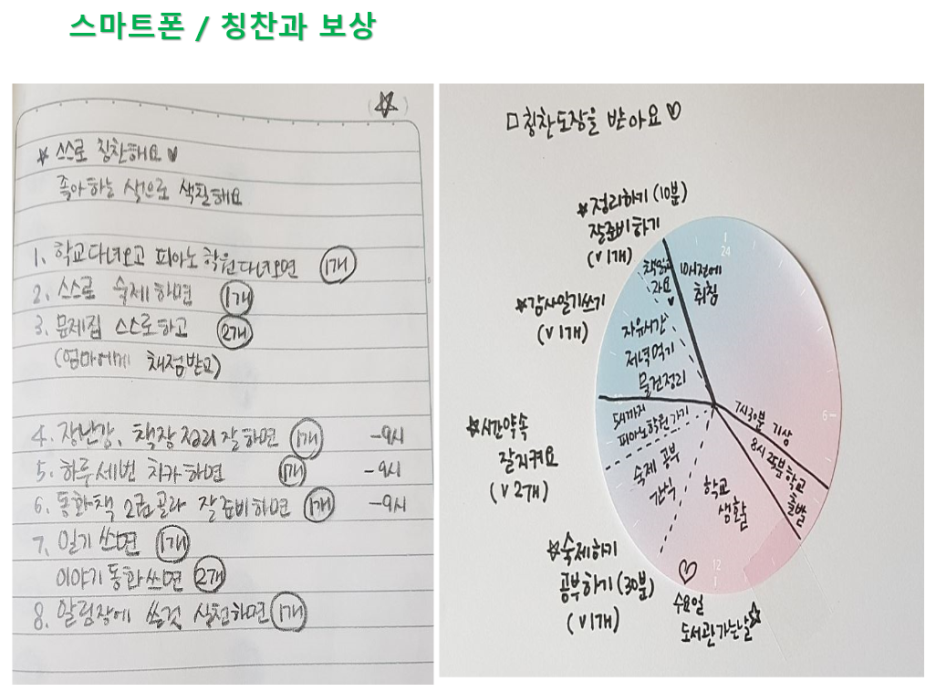 스마트폰 / 칭찬과 보상
(☆)
★ 스스로 칭찬해요 ♥
좋아하는 색으로 색칠해요
1. 학교다녀오고 피아노학원다녀오면 1개
2. 스스로 숙제하면 1개
3. 문제집 스스로하고 2개
(엄마에게 채점받고)
4. 장난감, 책장정리잘하면 1개 -9시
5. 하루세번 치카하면 1개 -9시
6. 동화책 2권골라 잘준비하면 1개 -9시
7. 일기쓰면 1개
이야기동화쓰면 2개
8. 알림장에 쓴것 실천하면 1개
□ 칭찬도장을 받아요 ♡
☆정리하기(10분)
잘준비하기
(v1개)
☆감사일기쓰기
(v1개)
☆시간약속
잘지켜요
(v2개)
☆숙제하기
공부하기(30분)
(v1개)
24
책읽고
자요
♥
10시전에
취침
자유시간
저녁먹기
물건정리
6
5시까지
피아노학원가기
숙제 공부
간식
학교
생활
7시30분 기상
8시25분학교
출발
12
♡
수요일
도서관가는날☆